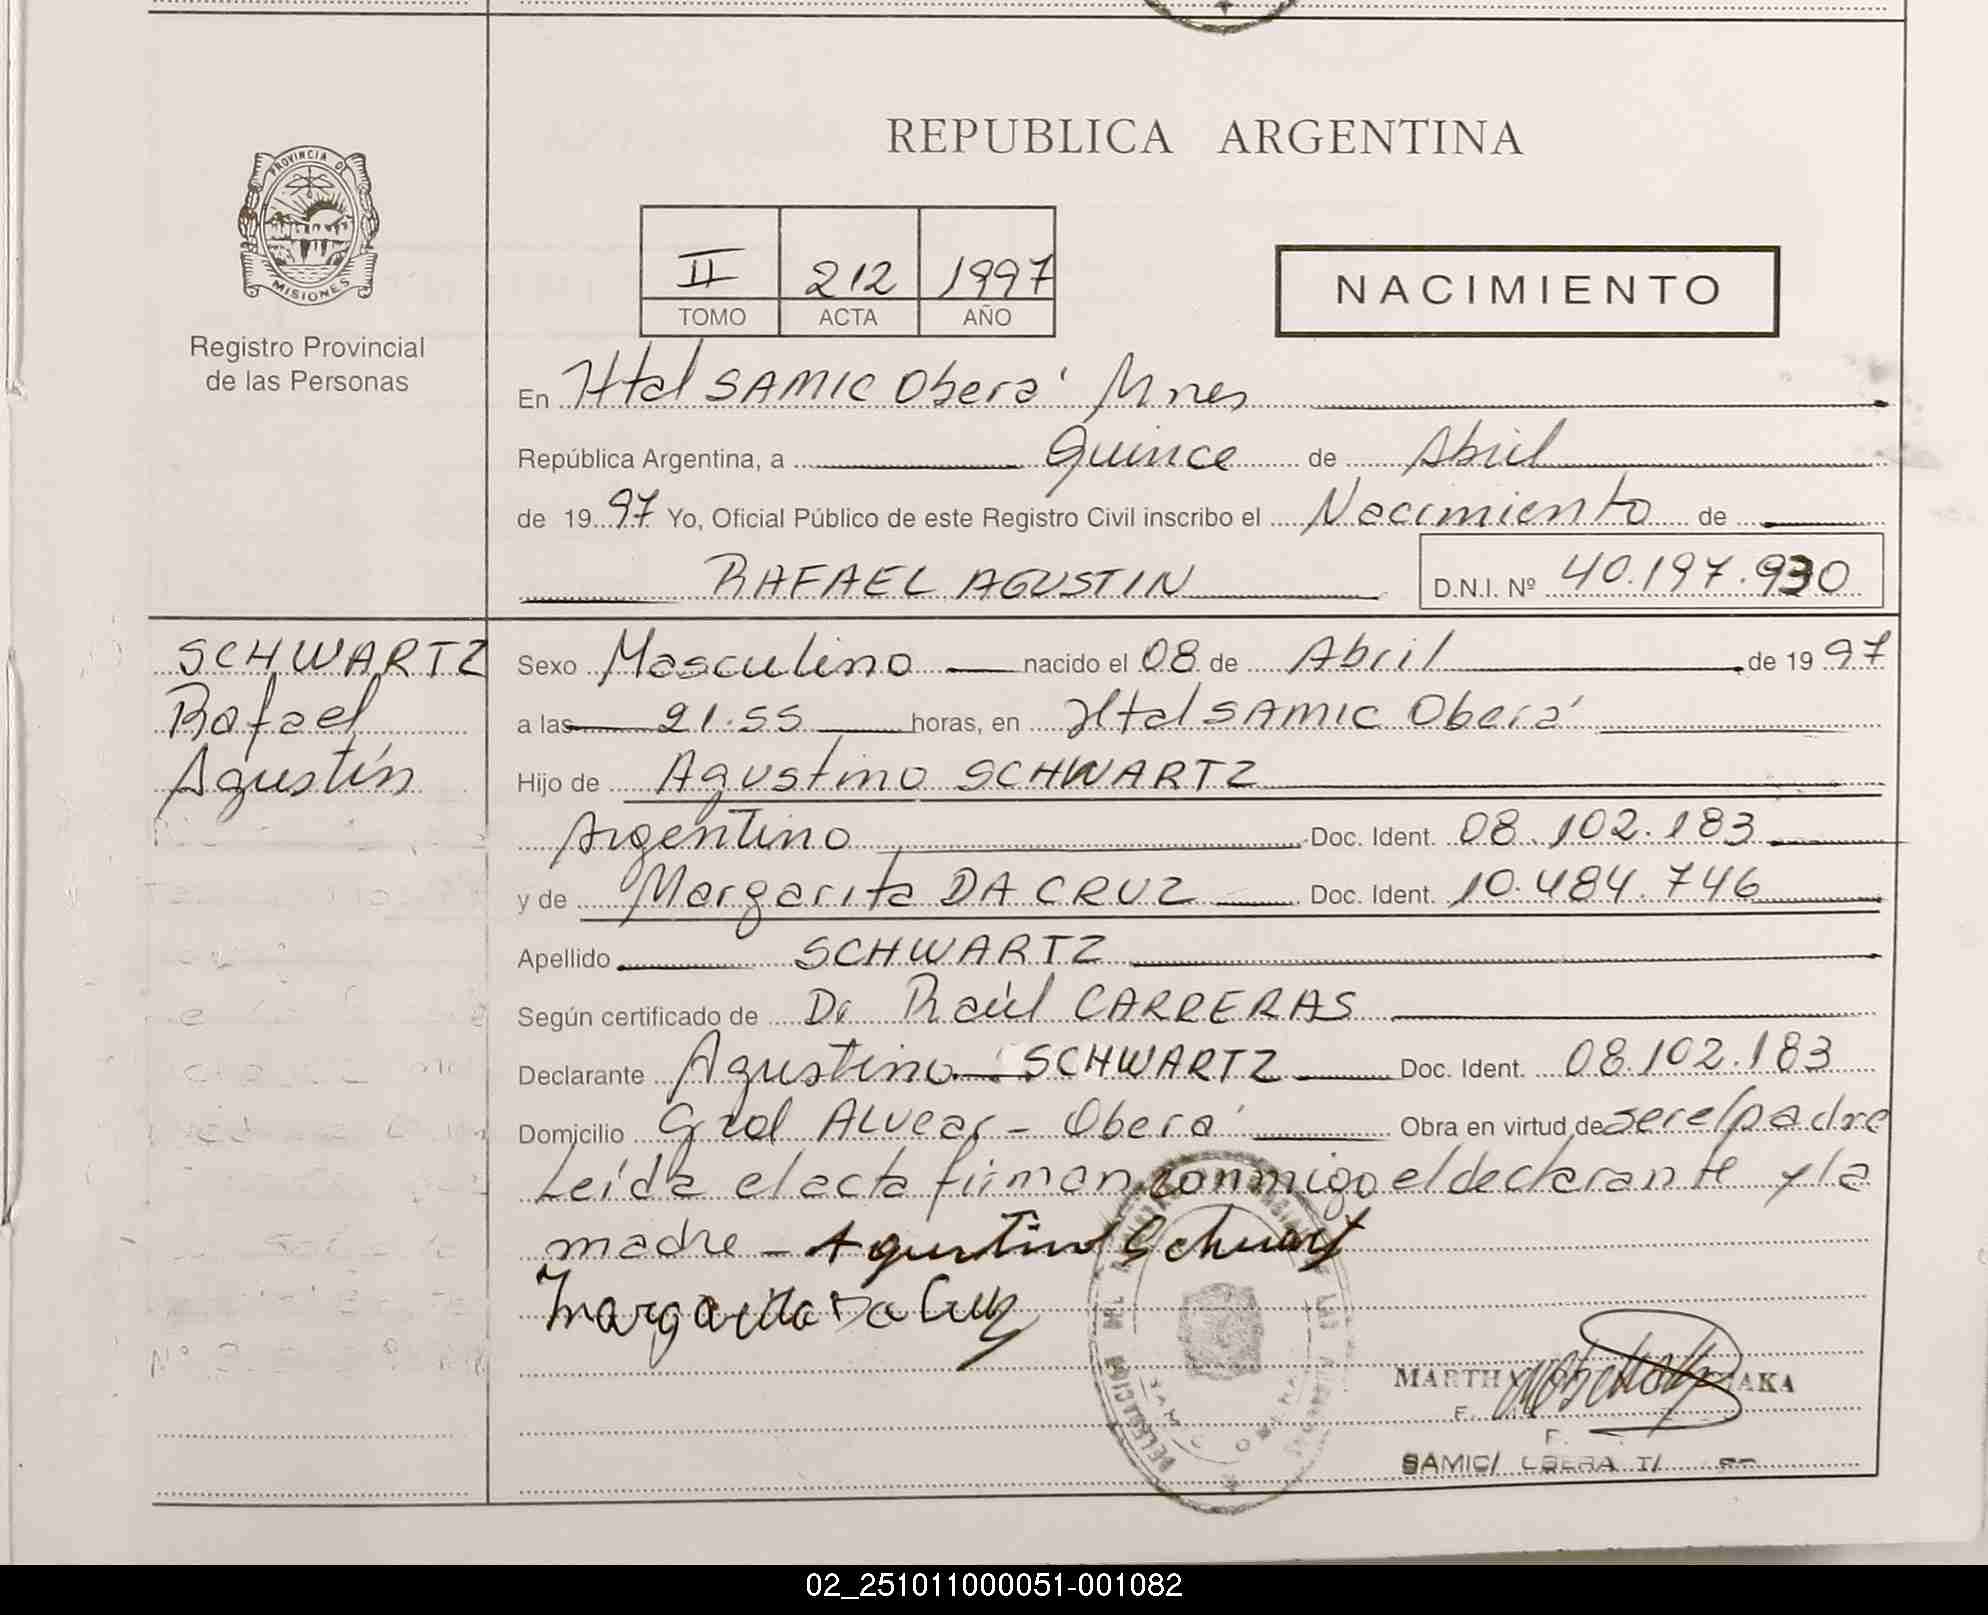 REPUBLICA ARGENTINA
PROVINCIA DE
MISIONES
Registro Provincial
de las Personas
II 212 1997
TOMO ACTA AÑO
NACIMIENTO
En Htal SAMIC Oberá Mnes
República Argentina, a Quince de Abril
de 1997 Yo, Oficial Público de este Registro Civil inscribo el Nacimiento de
RAFAEL AGUSTIN D.N.I. Nº 40.197.930
SCHWARTZ
Rafael
Agustín
Sexo Masculino nacido el 08 de Abril de 1997
a las 21.55 horas, en Htal SAMIC Oberá
Hijo de Agustino SCHWARTZ
Argentino Doc. Ident. 08.102.183
y de Margarita DA CRUZ Doc. Ident. 10.484.746
Apellido SCHWARTZ
Según certificado de Dr Raúl CARRERAS
Declarante Agustino SCHWARTZ Doc. Ident. 08.102.183
Domicilio Gral ALVear - Oberá Obra en virtud de ser el padre
Leída el acta firman conmigo el declarante y la
madre - Agustino Schwart
Margarita Da Cruz
MARTHA
SAMIC/
02_251011000051-001082